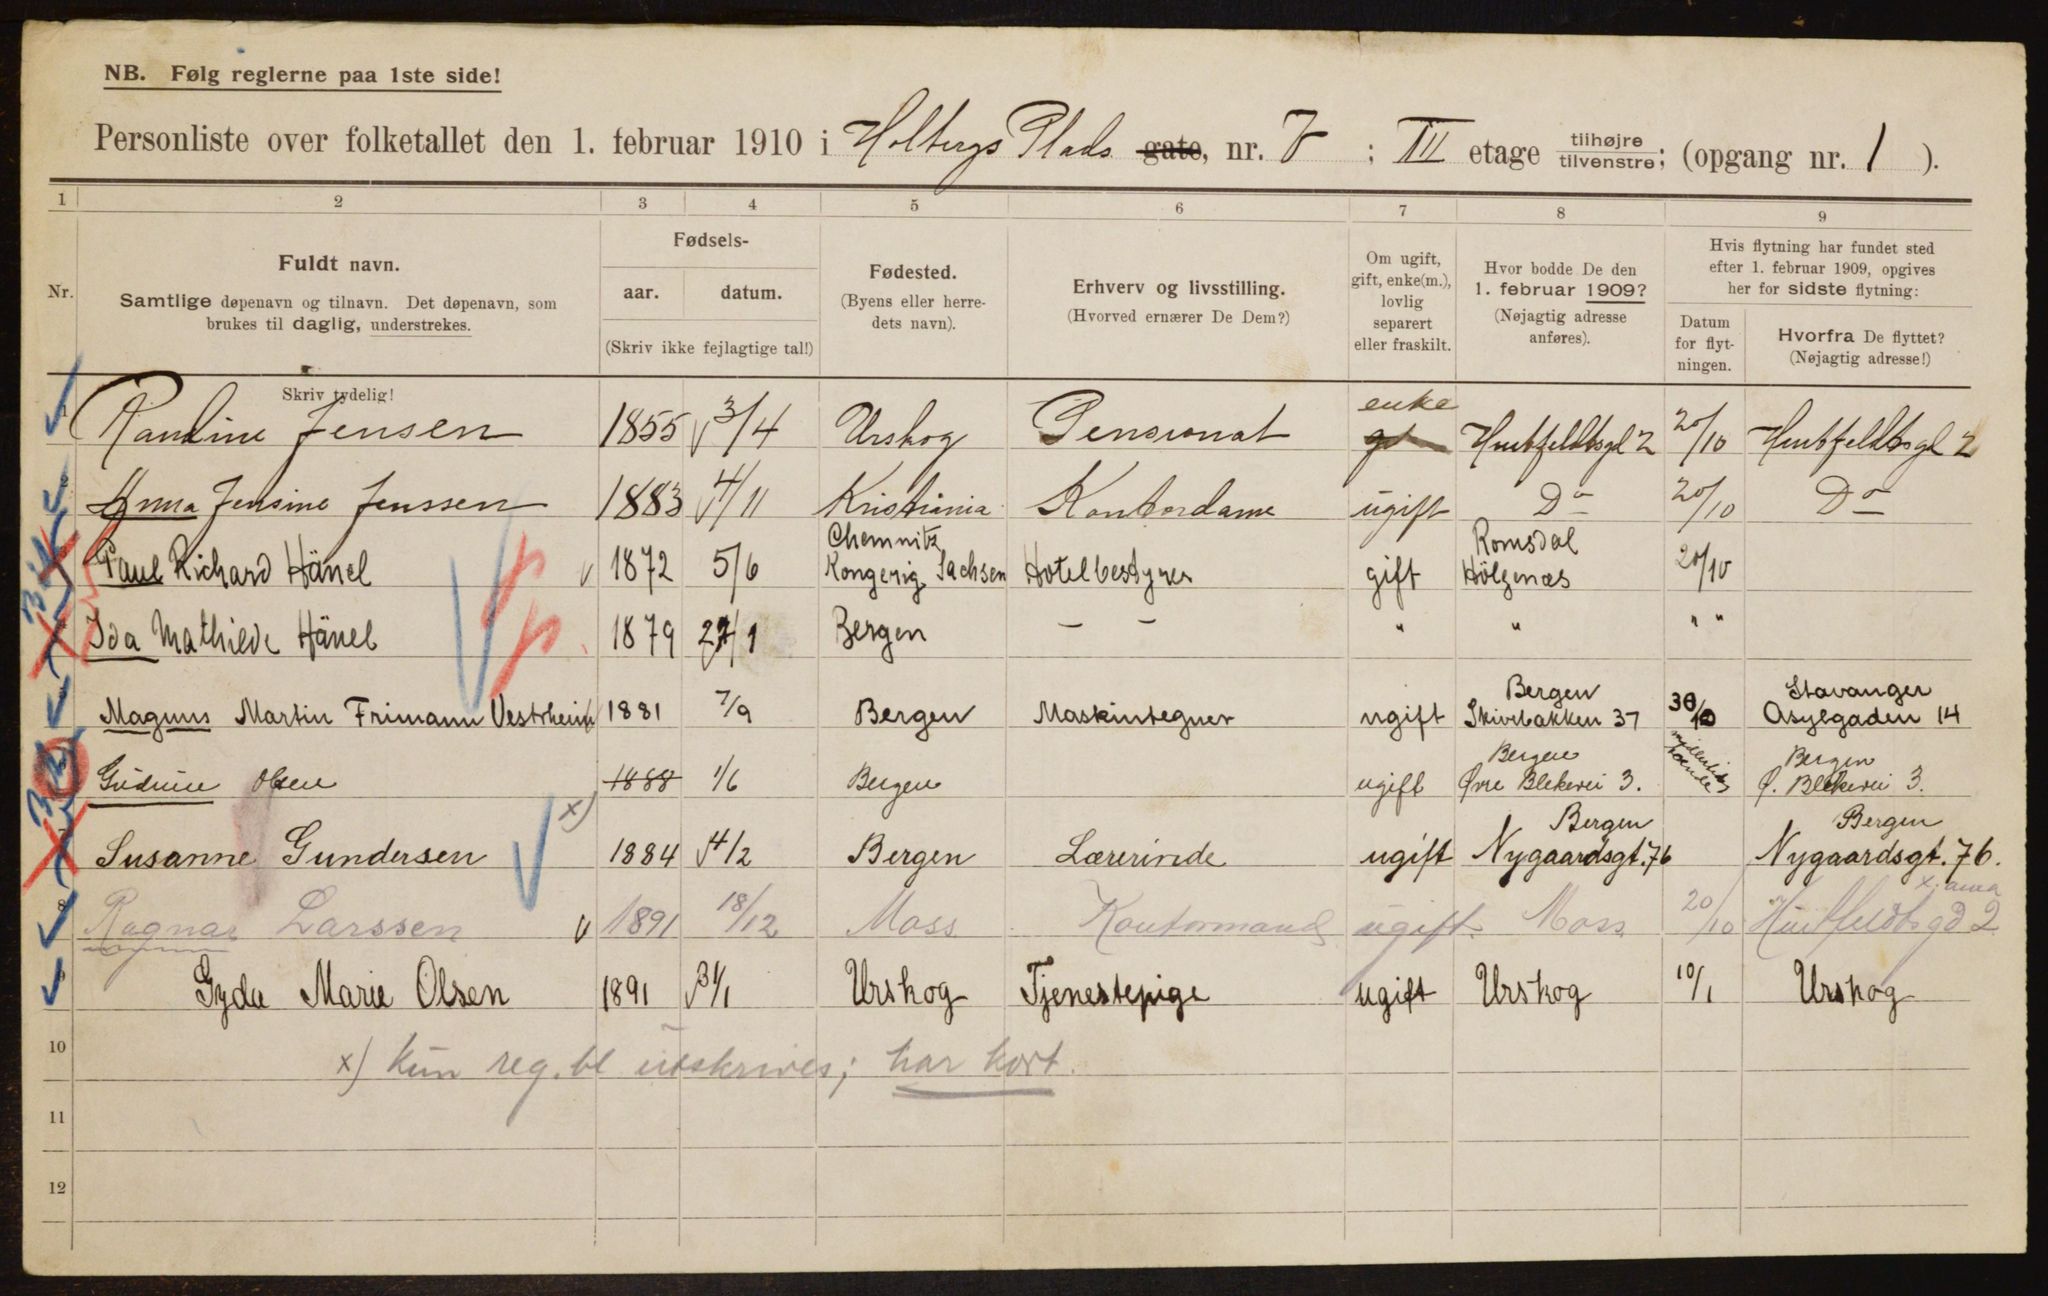 NB. Følg reglerne paa 1ste side!
Personliste over folketallet den 1. februar 1910 i Holbergs Plads gate, nr. 7 ; III etage tilhøjre tilvenstre; (opgang nr. 1 ).
1 2 3 4 5 6 7 8 9
Nr.
Fuldt navn.
Samtlige døpenavn og tilnavn. Det døpenavn, som
brukes til daglig, understrekes.
Skriv tydelig!
Fødsels-
aar. datum.
(Skriv ikke fejlagtige tal!)
Fødested.
(Byens eller herre-
dets navn).
Erhverv og livsstilling.
(Hvorved ernærer De Dem?)
Om ugift,
gift, enke(m.),
lovlig
separert
eller fraskilt.
Hvor bodde De den
1. februar 1909?
(Nøjagtig adresse
anføres).
Hvis flytning har fundet sted
efter 1. februar 1909, opgives
her for sidste flytning:
Datum
for flyt-
ningen.
Hvorfra De flyttet?
(Nøjagtig adresse!)
1 Pauline Jensen 1855 3/4 Urskog Pensionat enke Huitfeldtsgt 2 20/10 Huitfeldtsgt 2
2 Anna Jensine Jenssen 1883 4/11 Kristiania Kontordame ugift Do 20/10 Do
Paul Richard Hänel 1872 5/6 Chemnitz Kongerig Sachsen Hotelbestyrer gift Romsdal Hölgenæs 20/10
Ida Mathilde Hänel 1879 27/1 Bergen — — " " " "
Magnus Martin Frimann Vestrheim 1881 7/9 Bergen Maskintegner ugift Bergen Skivebakken 37 30/10 Stavanger Asylgaden 14
Gudrun Olsen 1888 1/6 Bergen ugift Bergen Øvre Blekevei 3. Bergen Ø. Blekevei 3.
7 Susanne Gundersen x) 1884 4/2 Bergen Lærerinde ugift Bergen Nygaardsgt. 76 Bergen Nygaardsgt. 76.
8 Ragnar Larssen 1891 18/12 Moss Kontormand ugift Moss 20/10 Huitfeldtsgd 2
9 Gyda Marie Olsen 1891 31/1 Urskog Tjenestepige ugift Urskog 10/1 Urskog
10 x) kun reg.bl utskrives; har kort.
11
12